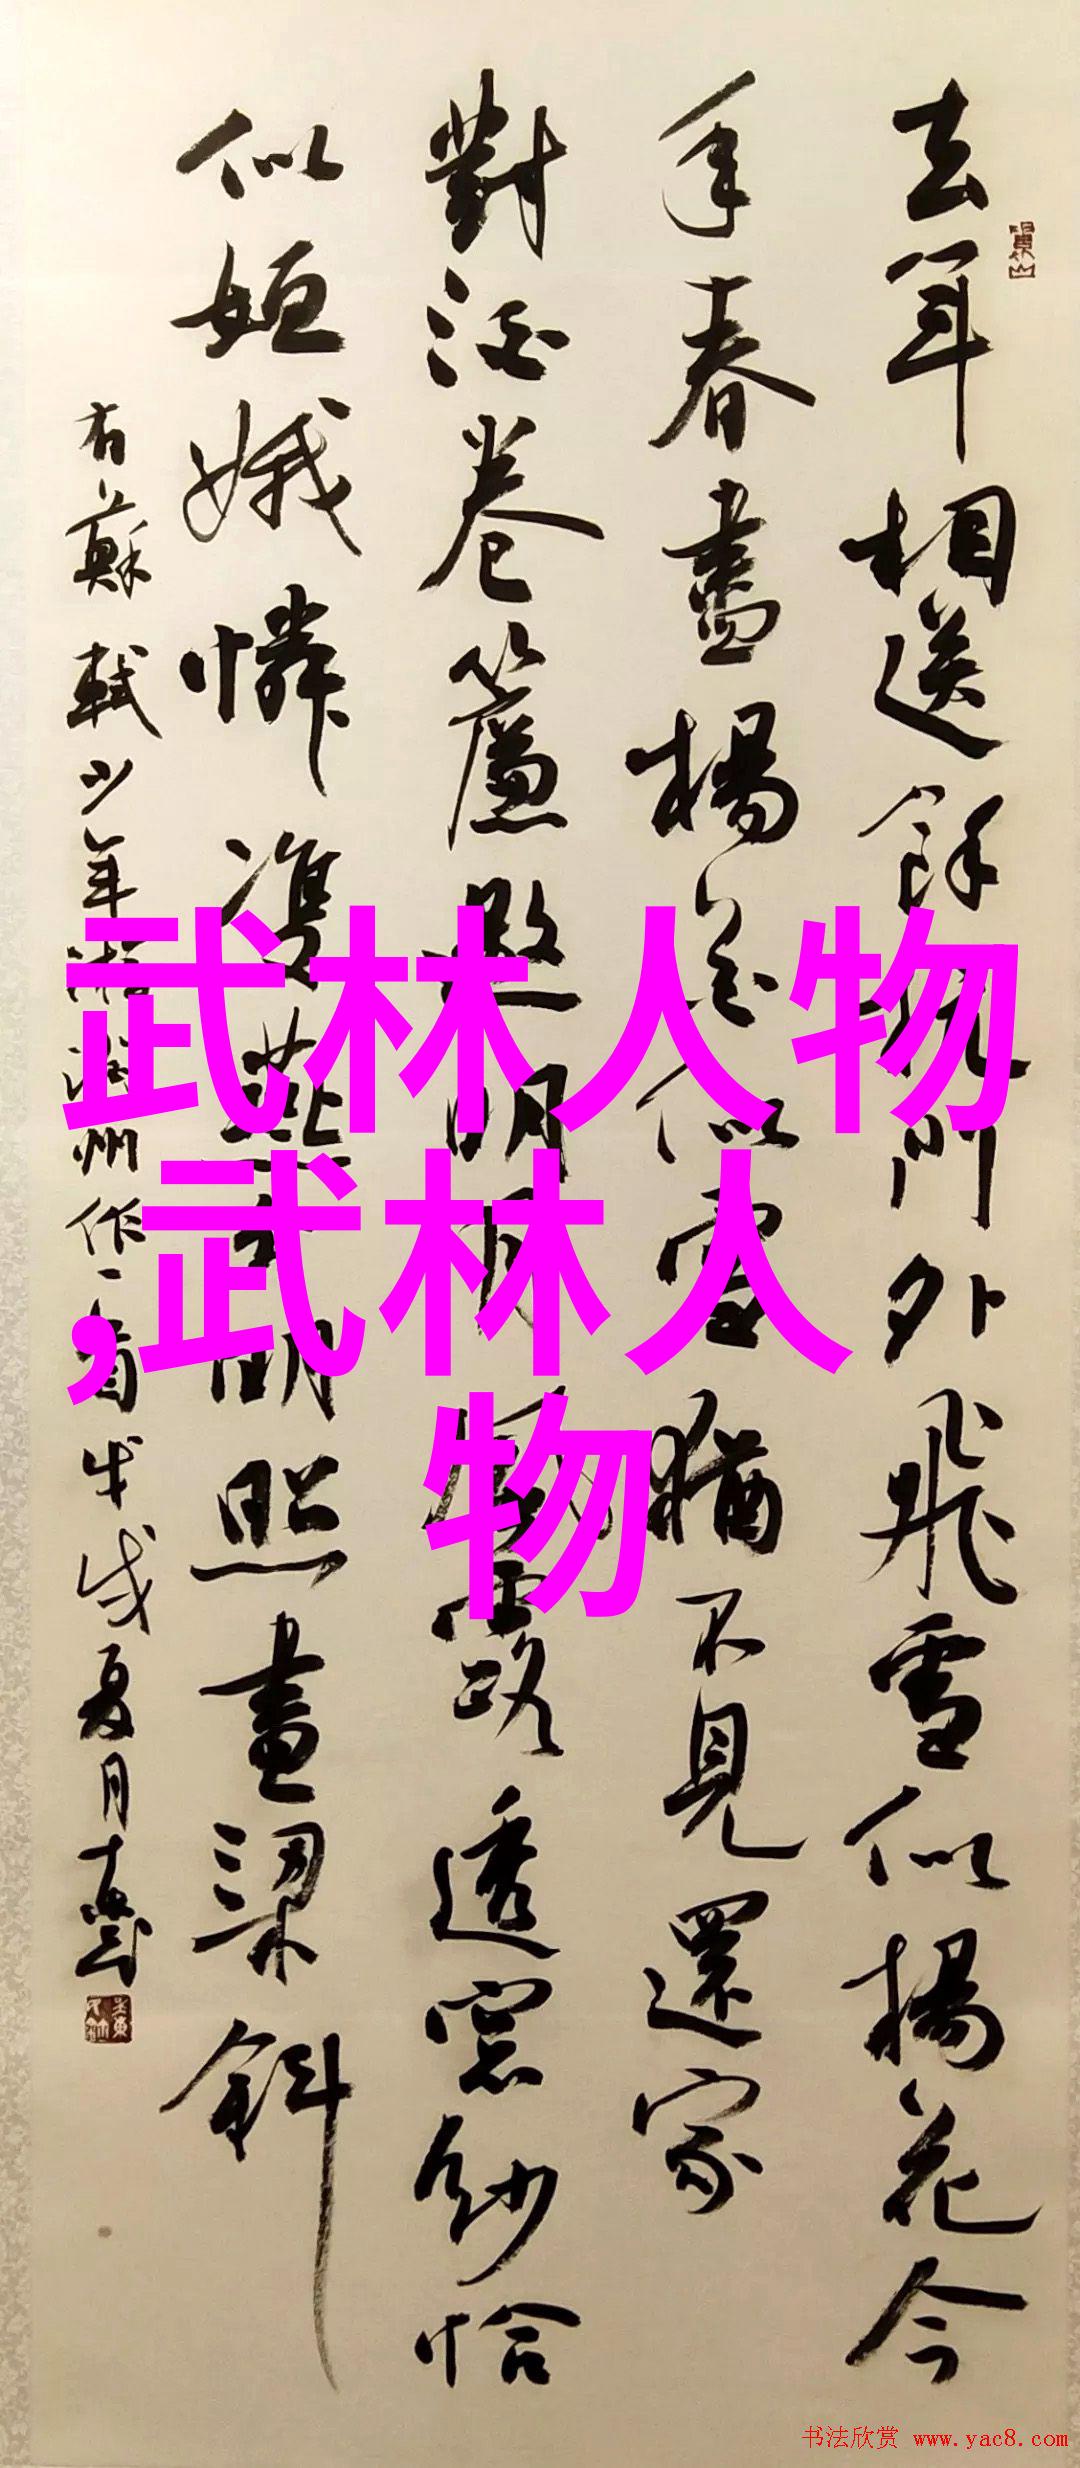 去年相送餘杭門外飛雪似楊花今
年春盡楊花似雪猶不見還家
對酒卷簾邀明月風露透窗紗恰
似姮娥憐雙燕分明照畫梁斜
右蘇軾少年游潤州作一首戊戌夏月
武林人物
,武林人
物
书法欣赏 www.yac8.com